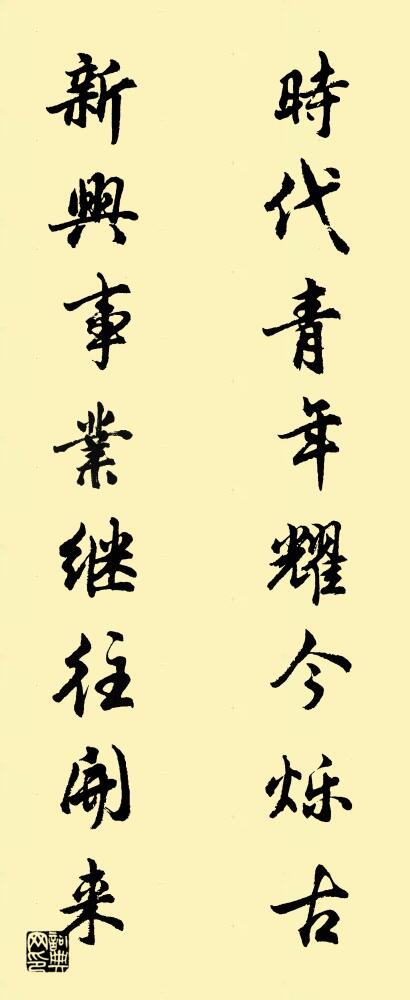 時代青年耀今烁古
新興事業继往開来
詞典網印